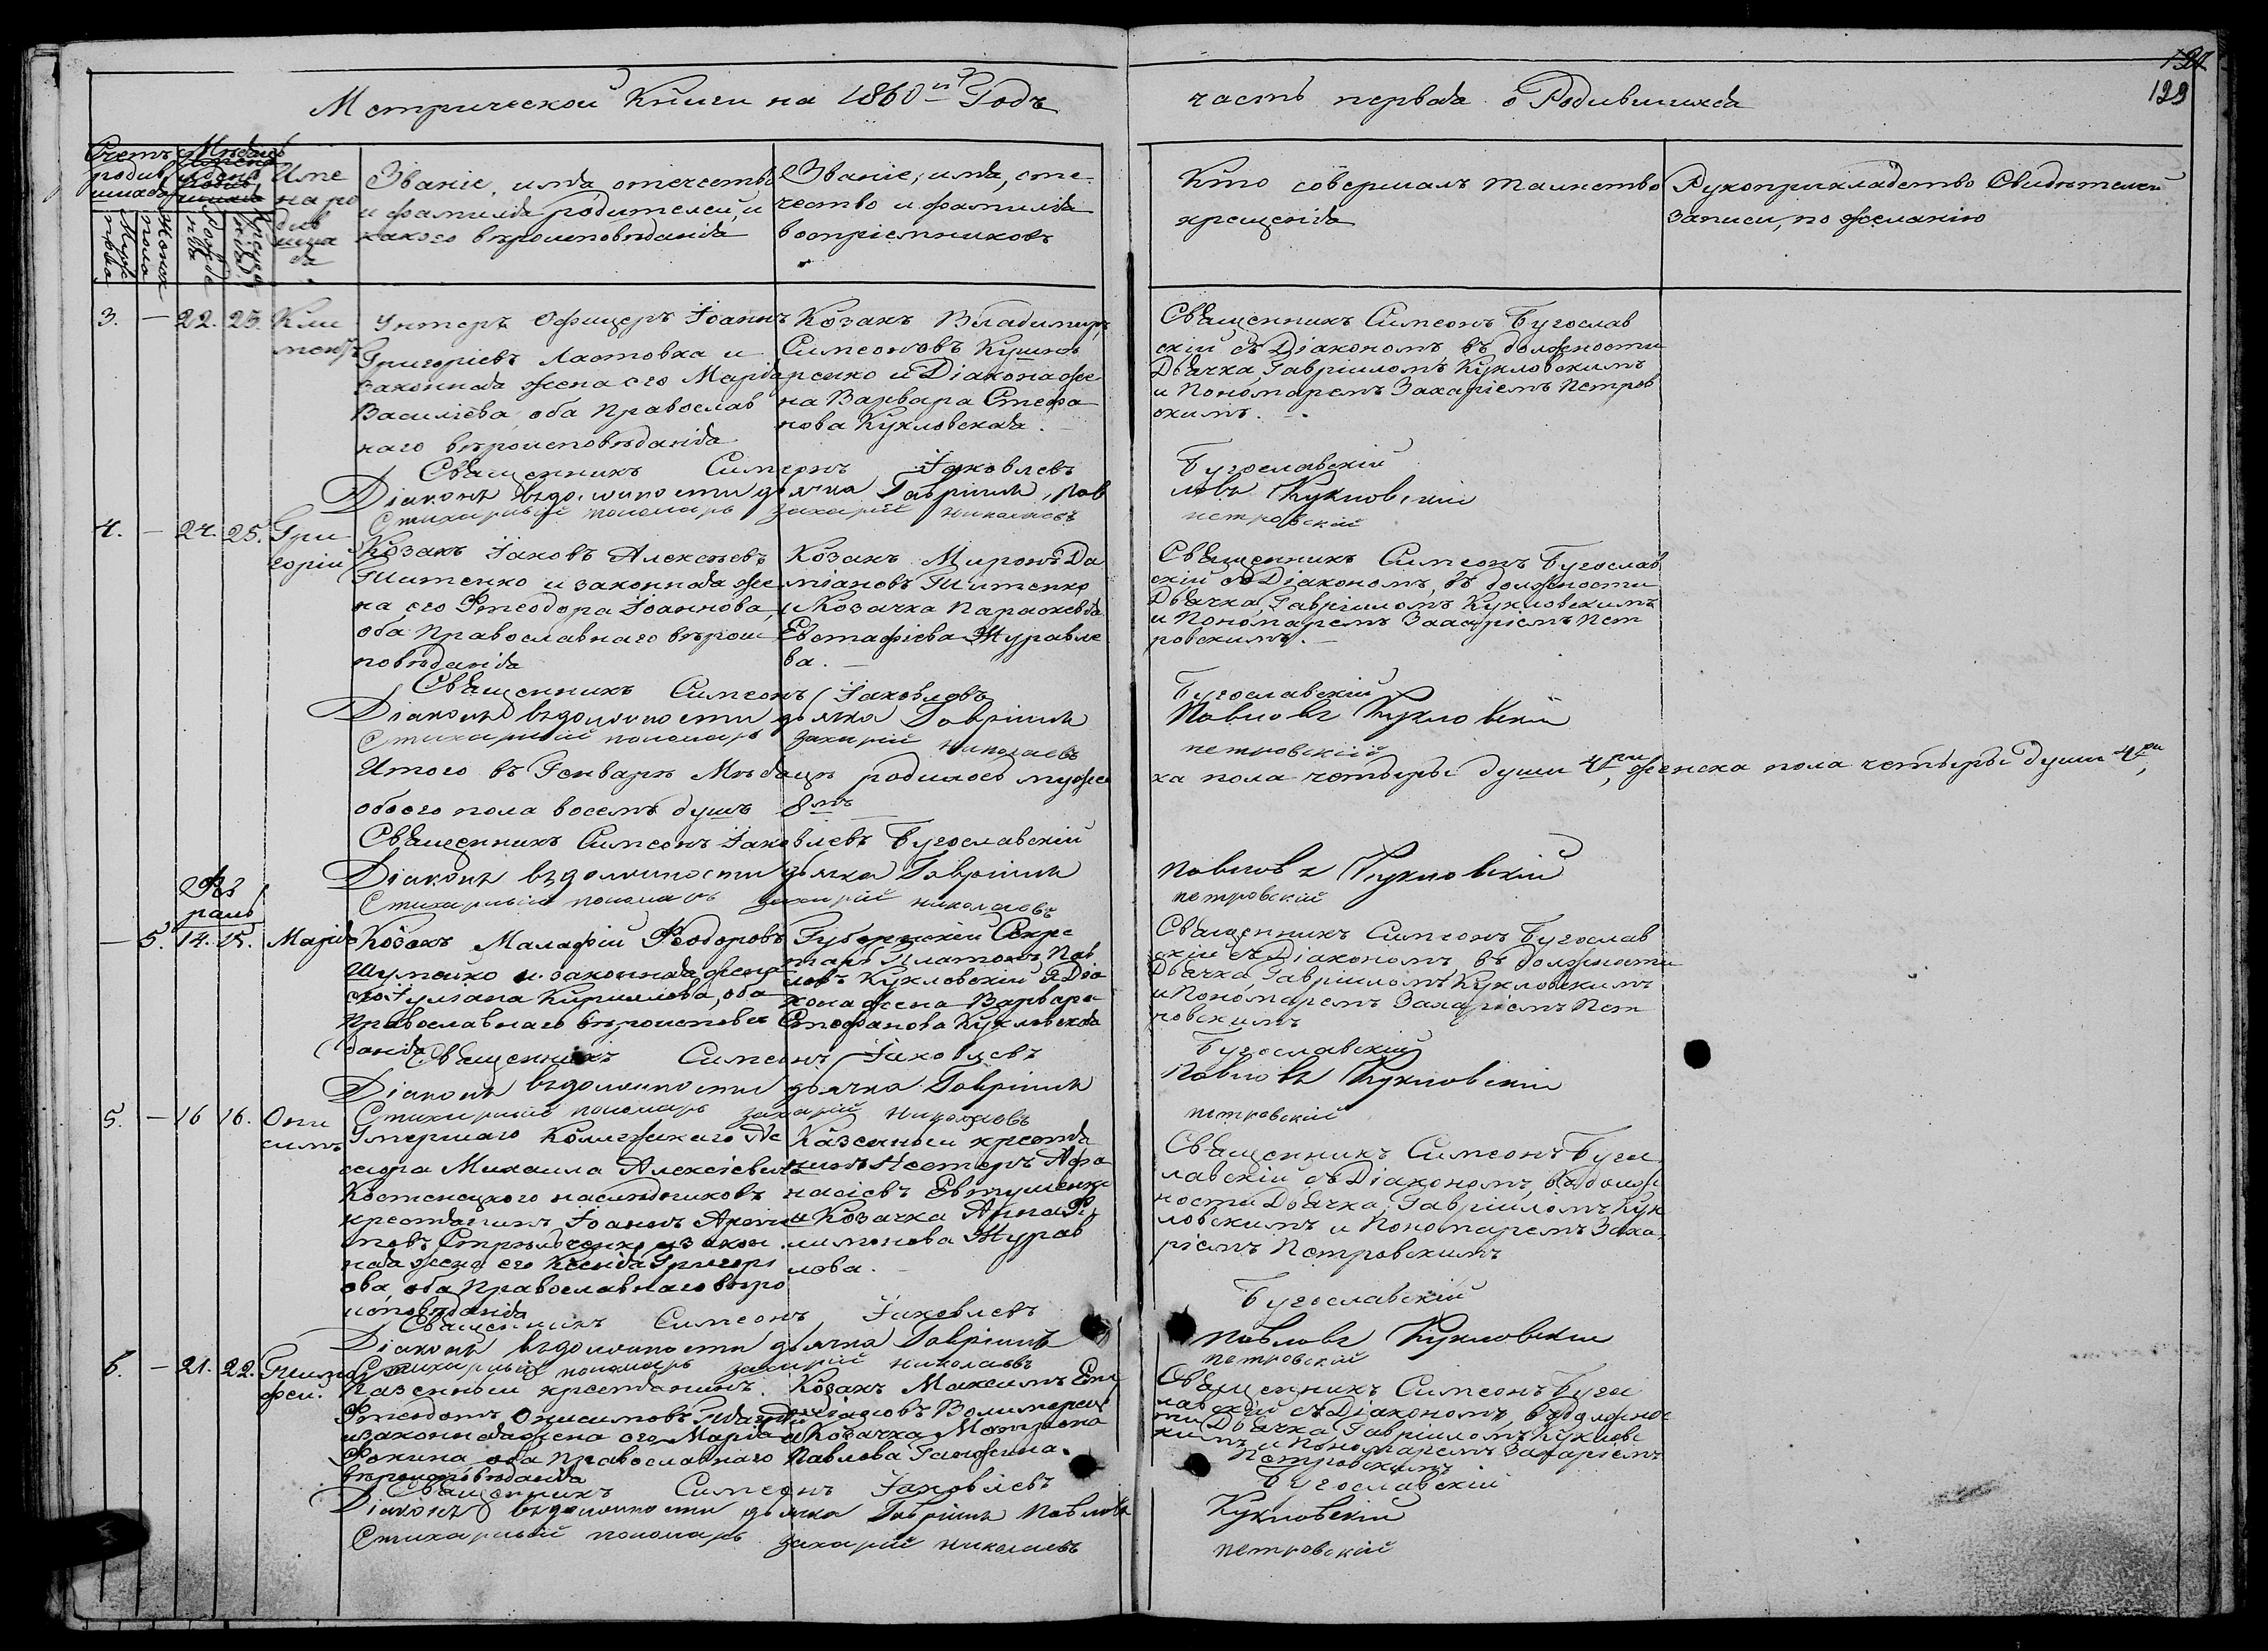 124
129
Метрической Книги на 1860й Годъ
часть первая о Родившихся
Счетъ родив шихся
Мѣсяцъ и день
Муже пола
Женск пола
Рожде нія
Креще нія
Име на ро див шихся
Званіе, имя, отечество и фамилія родителей, и какого вѣроисповѣданія
Званіе, имя, оте чество и фамилія воспріемниковъ
Кто совершалъ таинство крещенія
Рукоприкладство Свидѣтелей записи, по желанію
3. — 22. 23. Кли ментъ
Унтеръ Офицеръ Іоаннъ
Григоріевъ Ластовка и
законная жена его Марія
Василіева, оба Православ
наго вѣроисповѣданія
Козакъ Владимиръ
Симеоновъ Кушни
ренко и Діакона же
на Варвара Стефа
нова Кукловская.
Священникъ Симеонъ Бугослав
скій съ Діакономъ въ должности
Дьячка Гавріиломъ Кукловскимъ
и Пономаремъ Захаріемъ Петров
скимъ.
Священникъ Симеонъ Іаковлевъ Бугославскій
Діаконъ въ должности дьячка Гавріилъ Пав ловъ Кукловскій
Стихарный пономарь Захарій Николаевъ Петровскій
4. — 24. 25. Гри горій
Козакъ Іаковъ Алексѣевъ
Титенко и законная же
на его Ѳеодора Іоаннова,
оба Православнаго вѣроис
повѣданія
Козакъ Миронъ Да
міановъ Титенко
и Козачка Параскевія
Евстафіева Журавле
ва.
Священникъ Симеонъ Бугослав
скій съ Діакономъ, въ должности
Дьячка, Гавріиломъ Кукловскимъ
и Пономаремъ Захаріемъ Пет
ровскимъ.
Священникъ Симеонъ Іаковлевъ Бугославскій
Діаконъ въ должности дьячка Гавріилъ Павловъ Кукловскій
Стихарный пономарь Захарій Николаевъ Петровскій
Итого въ Генварѣ Мѣсяцѣ родилось мужес ка пола четыри души 4ри, женска пола четыри души 4ри,
обоего пола восемъ душъ 8мъ
Священникъ Симеонъ Іаковлевъ Бугославскій
Діаконъ въ должности дьячка Гавріилъ Павловъ Кукловскій
Стихарный пономарь Захарій Николаевъ Петровскій
Фев раль
— 5. 14. 15. Марія
Козакъ Малафій Ѳеодоровъ
Шумейко и законная жена
его Іуліана Кириллова, оба
Православнаго вѣроисповѣ
данія
Губернскій Секре
тарь Платонъ Пав
ловъ Кукловскій и Діа
кона жена Варвара
Стефанова Кукловская
Священникъ Симеонъ Бугослав
скій съ Діакономъ въ должности
Дьячка, Гавріиломъ Кукловскимъ
и Пономаремъ Захаріемъ Пет
ровскимъ
Священникъ Симеонъ Іаковлевъ Бугославскій
Діаконъ въ должности дьячка Гавріилъ Павловъ Кукловскій
Стихарный пономарь Захарій Николаевъ Петровскій
5. — 16 16. Они симъ
Умершаго Коллежскаго Ас
сесора Михаила Алексіевича
Костенецкого наслѣдниковъ
крестьянинъ Іоаннъ
Стрѣльченко и закон
ная жена его Ксенія Григорі
ева, оба Православнаго вѣро
исповѣданія
Казенный крестья
нинъ Нестеръ Афа
насіевъ Евтушенко
и Козачка Анна Фи
лимонова Журав
лова.
Священникъ Симеонъ Буго
славскій съ Діакономъ, въ долж
ности Дьячка, Гавріиломъ Кук
ловскимъ и Пономаремъ Заха
ріемъ Петровскимъ
Священникъ Симеонъ Іаковлевъ Бугославскій
Діаконъ въ должности дьячка Гавріилъ Павловъ Кукловскій
Стихарный пономарь Захарій Николаевъ Петровскій
6. — 21. 22. Тимо фей.
Казенный крестьянинъ
Ѳеодотъ Онисимовъ
и законная жена его Марія
Фокина оба Православнаго
вѣроисповѣданія
Козакъ Максимъ
и Козачка Мотрона
Павлова Ганжина.
Священникъ Симеонъ Буго
славскій съ Діакономъ, въ должнос
ти Дьячка Гавріиломъ Кукловс
кимъ и Пономаремъ Захаріемъ
Петровскимъ
Священникъ Симеонъ Іаковлевъ Бугославскій
Діаконъ въ должности дьячка Гавріилъ Павловъ Кукловскій
Стихарный пономарь Захарій Николаевъ Петровскій